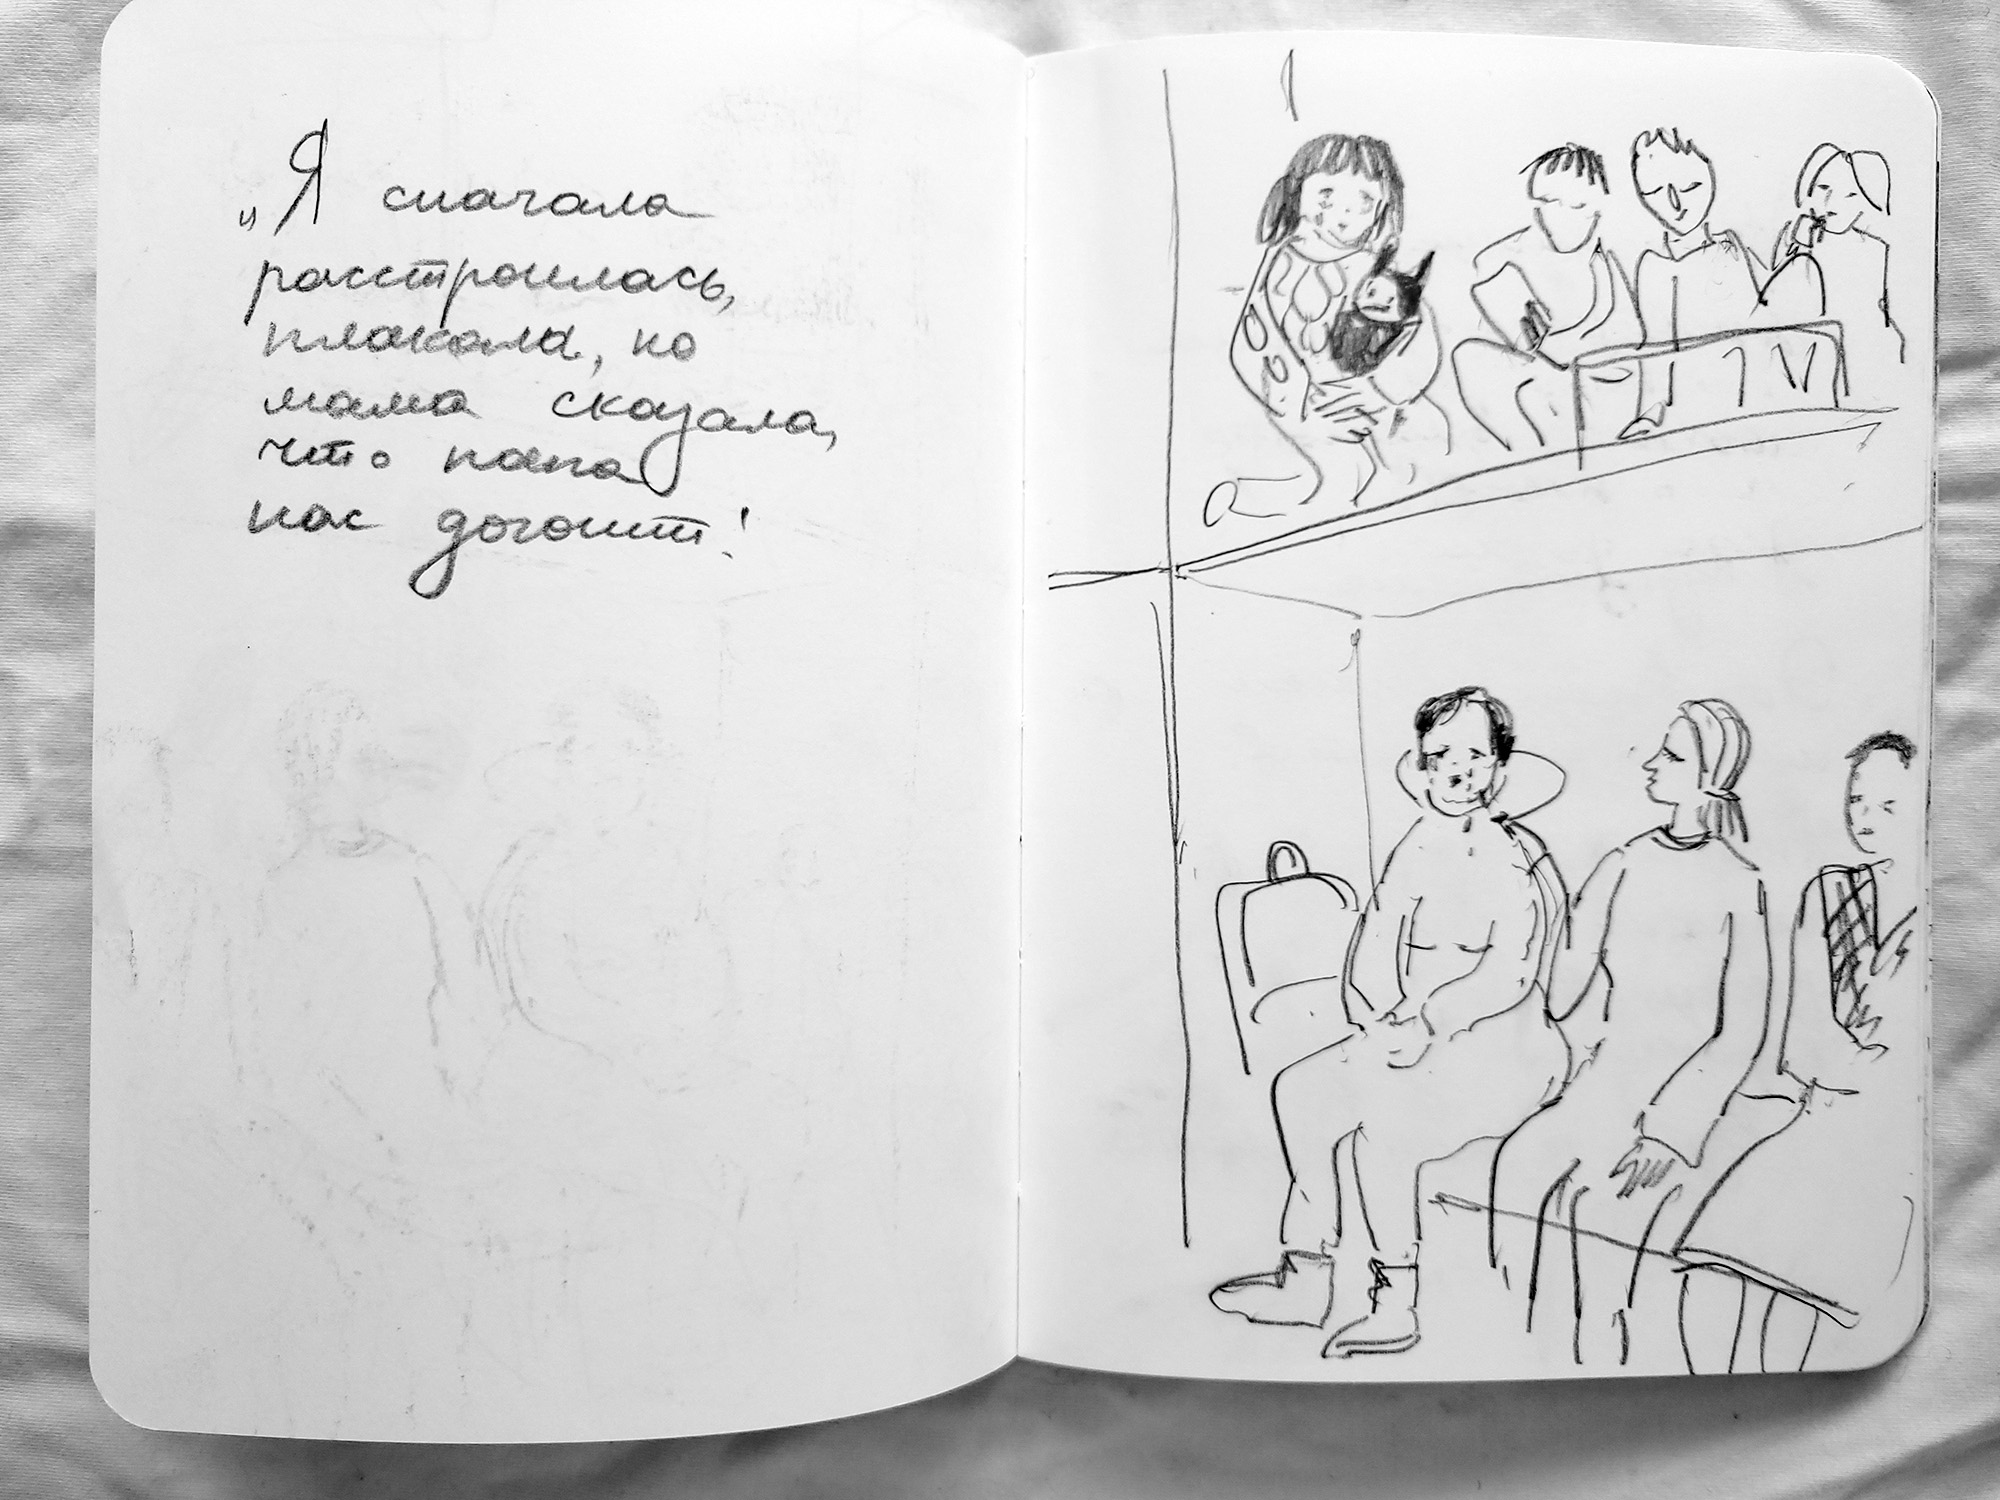 „Я сначала
расстроилась,
плакала, но
мама сказала,
что папа
нас догонит!